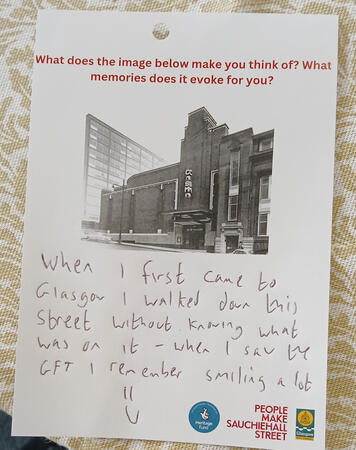 What does the image below make you think of? What
memories does it evoke for you?
When I first came to
Glasgow I walked down this
Street without knowing what
was on it - when I saw the
GFT I remember smiling a lot
Heritage
Fund
PEOPLE
MAKE
SAUCHIEHALL
STREET